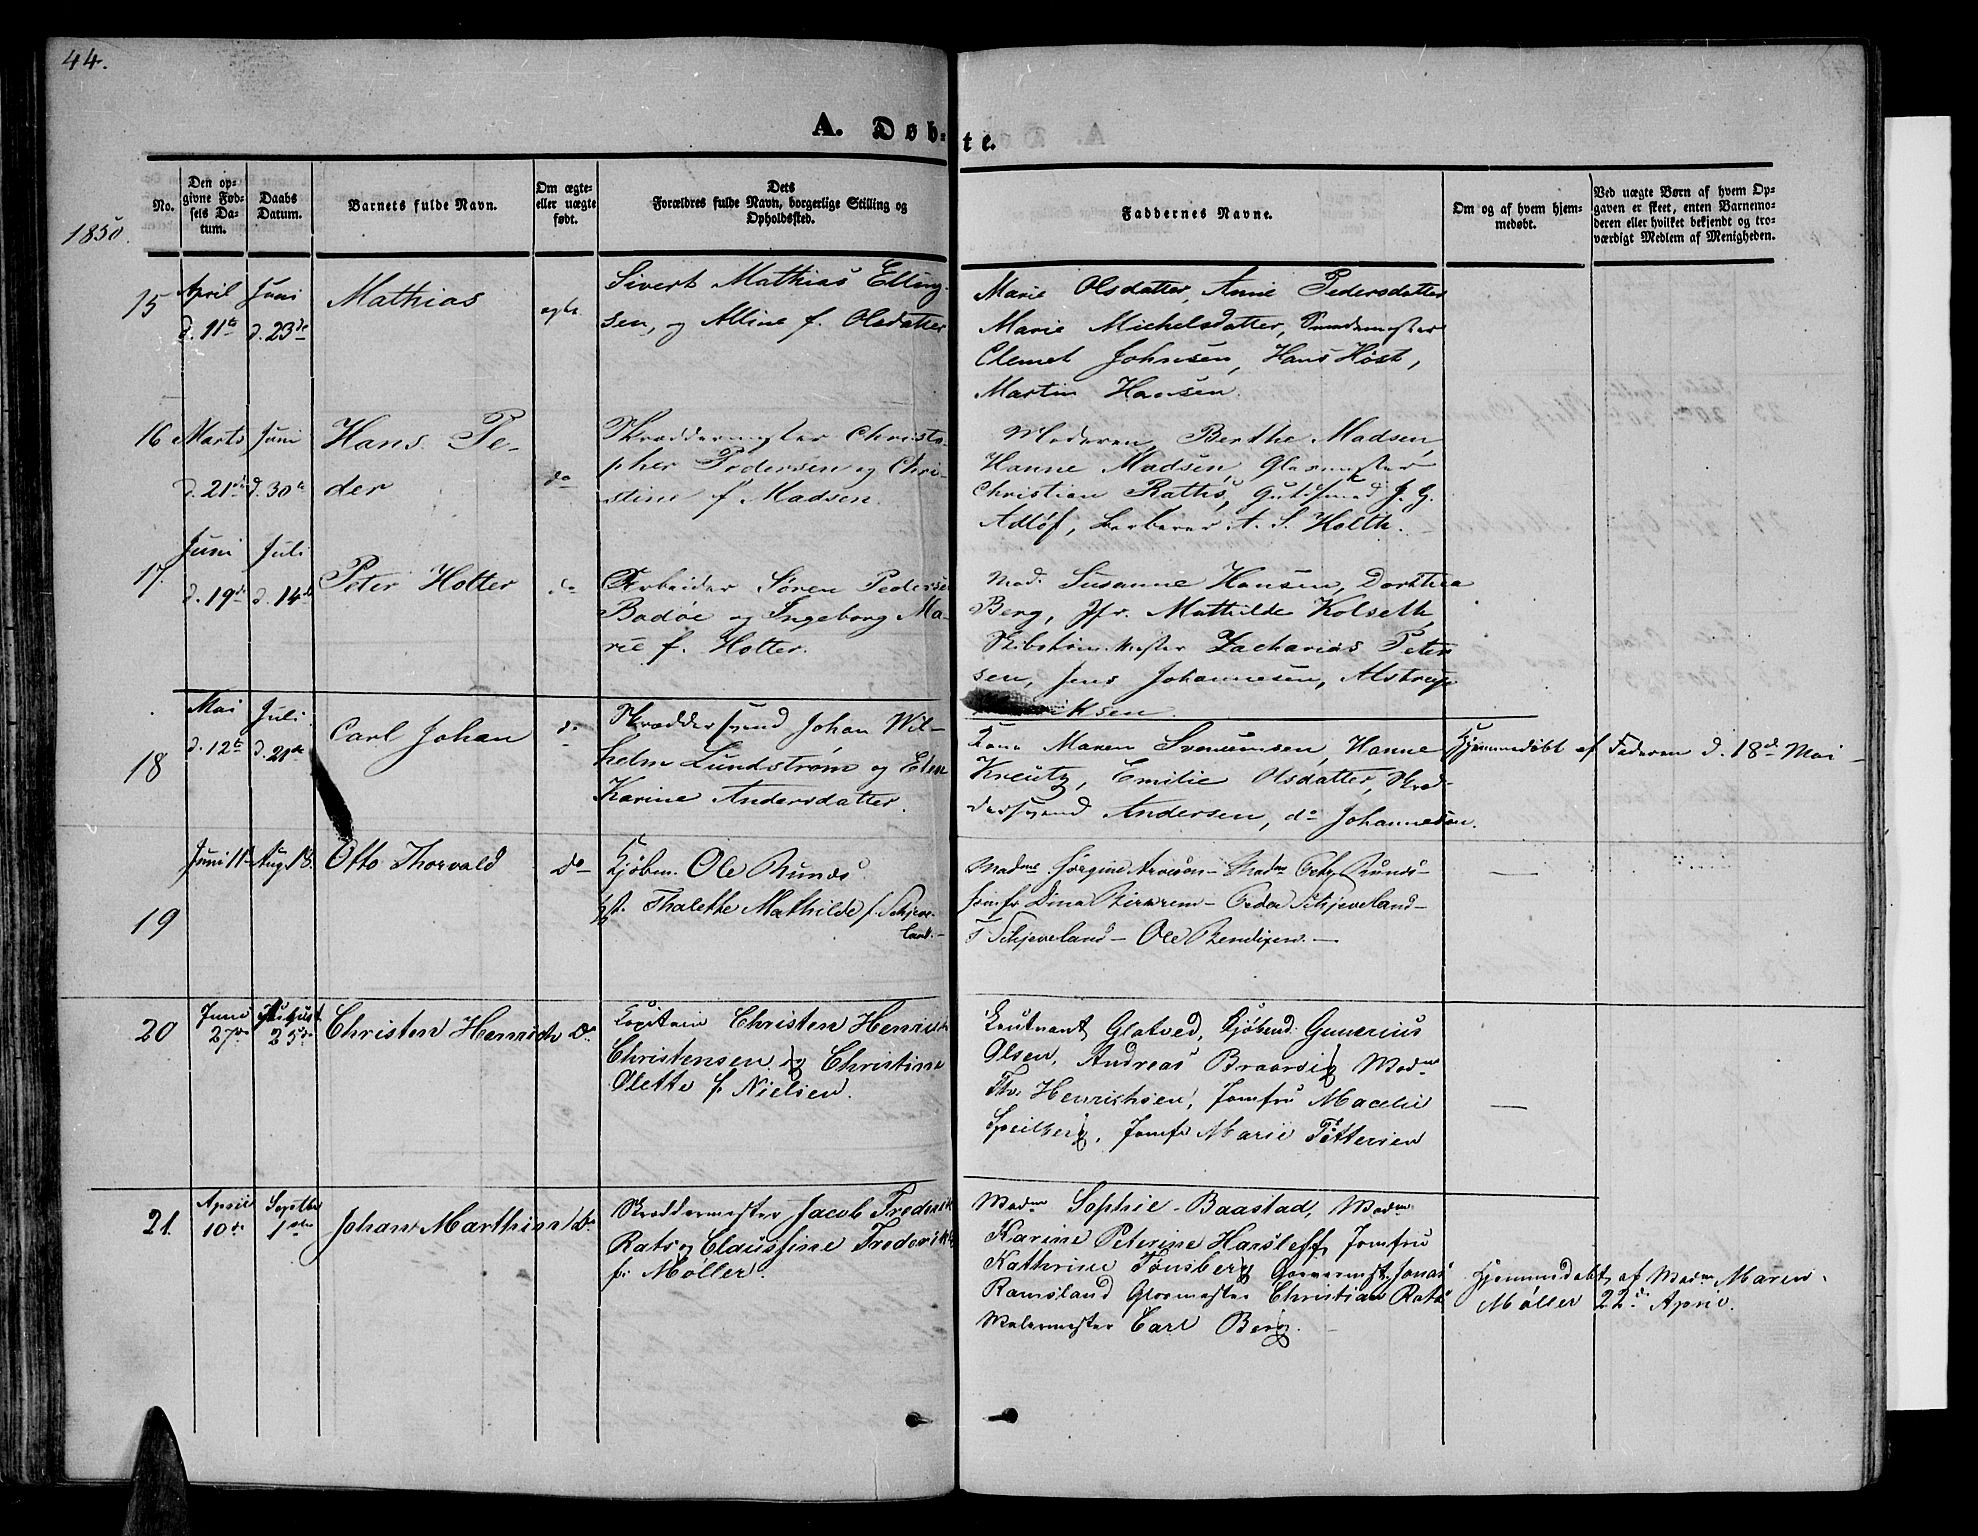 44.
A. Døb-
te.
No.
Den op-
givne Fød-
sels Da-
tum.
Daabs
Datum.
Barnets fulde Navn.
Om ægte-
eller uægte
født.
Dets
Forældres fulde Navn, borgerlige Stilling og
Opholdssted.
Faddernes Navne.
Om og af hvem hjem-
medøbt.
Ved uægte Børn af hvem Op-
gaven er skeet, enten Barnemo-
deren eller hvilket bekjendt og tro-
værdigt Medlem af Menigheden.
1850.
15
April
d. 11te
Juni
d. 23de
Mathias
ægte
Sivert Mathias Elling-
sen, og Alline f. Olsdatter
Marie Olsdatter, Anne Pedersdatter
Marie Michelsdatter, Smedemester
Clemet Johnsen, Hans Höst,
Martin Hansen.
16
Marts
d. 21de
Juni
d. 30te
Hans Pe-
der
do
Skreddermester Christo-
pher Pedersen og Chri-
stine f Madsen.
Moderen, Berthe Madsen,
Hanne Madsen, Glasmester
Christian Raths, Guldsmed J. G.
Adlöf, Barberer A. S. Holth.
17.
Juni
d. 19de
Juli
d. 14de
Peter Holter
do
Arbeider Søren Pedersen
Bodöe og Ingeborg Ma-
rie f. Holter.
Mad. Susanne Hansen, Dorthea
Berg, Jfr. Mathilde Kolseth,
Skibstømmester Zacharias Peter
sen, Jens Johannesen, Alstrup
riksen.
18
Mai
d. 12te
Juli
d. 21de
Carl Johan
do
Skreddersvend Johan Wil-
helm Lundstrøm og Elen
Karine Andersdatter.
Kone Maren Svendsen, Hanne
Kreutz, Emilie Olsdatter, Skred-
dersvend Andersen, do Johannesen.
Hjemmedøbt af Faderen d. 18de Mai
19
Juni 11te
Aug. 18.
Otto Thorvald
do
Kjøbm. Ole Runds
hst. Thalette Mathilde f. Schjeve-
land.
Madme Jørgine Arvesen - Madme Runds -
Jomfr Dina Birkrem - Peder Schjeveland -
T Schjeveland - Ole Bendixen. -
20
Juni
27de
August
25de
Christen Henrich
do
Capitain Christen Henrich
Christensen og Christine
Olette f. Nielsen.
Leutnant Glatved, Kjøbmd: Gunerius
Olsen, Andreas Braarsig Madme
Th. Henrichsen, Jomfru Macelie
Speilberg, Jomfr Marie Pettersen
21.
April
10de
Septbr
1ste
Johan Marthin
do
Skreddermester Jacob Frederik
Rats og Claussine Frederikke
f: Møller.
Madme Sophie Baastad, Madme
Karine Peterine Harsleff, Jomfru
Kathrine Tønsberg Garvermstr Jonas
Ramsland Glasmester Christian Rats
Malermester Carl Berg.
Hjemmedøbt af Madme Maren
Møller 22de April.